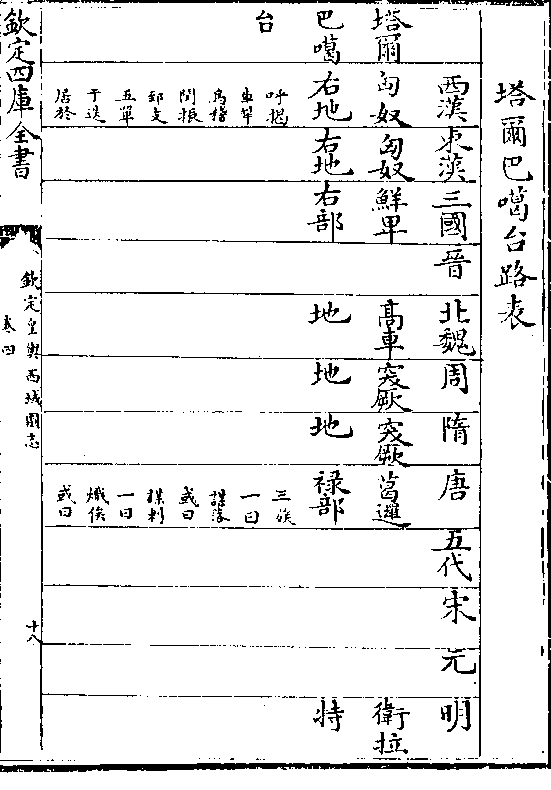 塔爾巴噶台路表
西漢 東漢 三國 晉 北魏 周 隋 唐 五代 宋 元 明
塔爾 匈奴 匈奴 鮮卑 高車 突厥 突厥 葛邏 衛拉
巴噶 右地 右地 右部 地 地 地 禄部 特
台
呼揭 三族
車犂 一曰
烏藉 謀落
閏振 或曰
郅支 謀刺
五單 一曰
于迭 熾俟
居於 或曰
欽定四庫全書
欽定皇輿西域圖志
卷四
十八